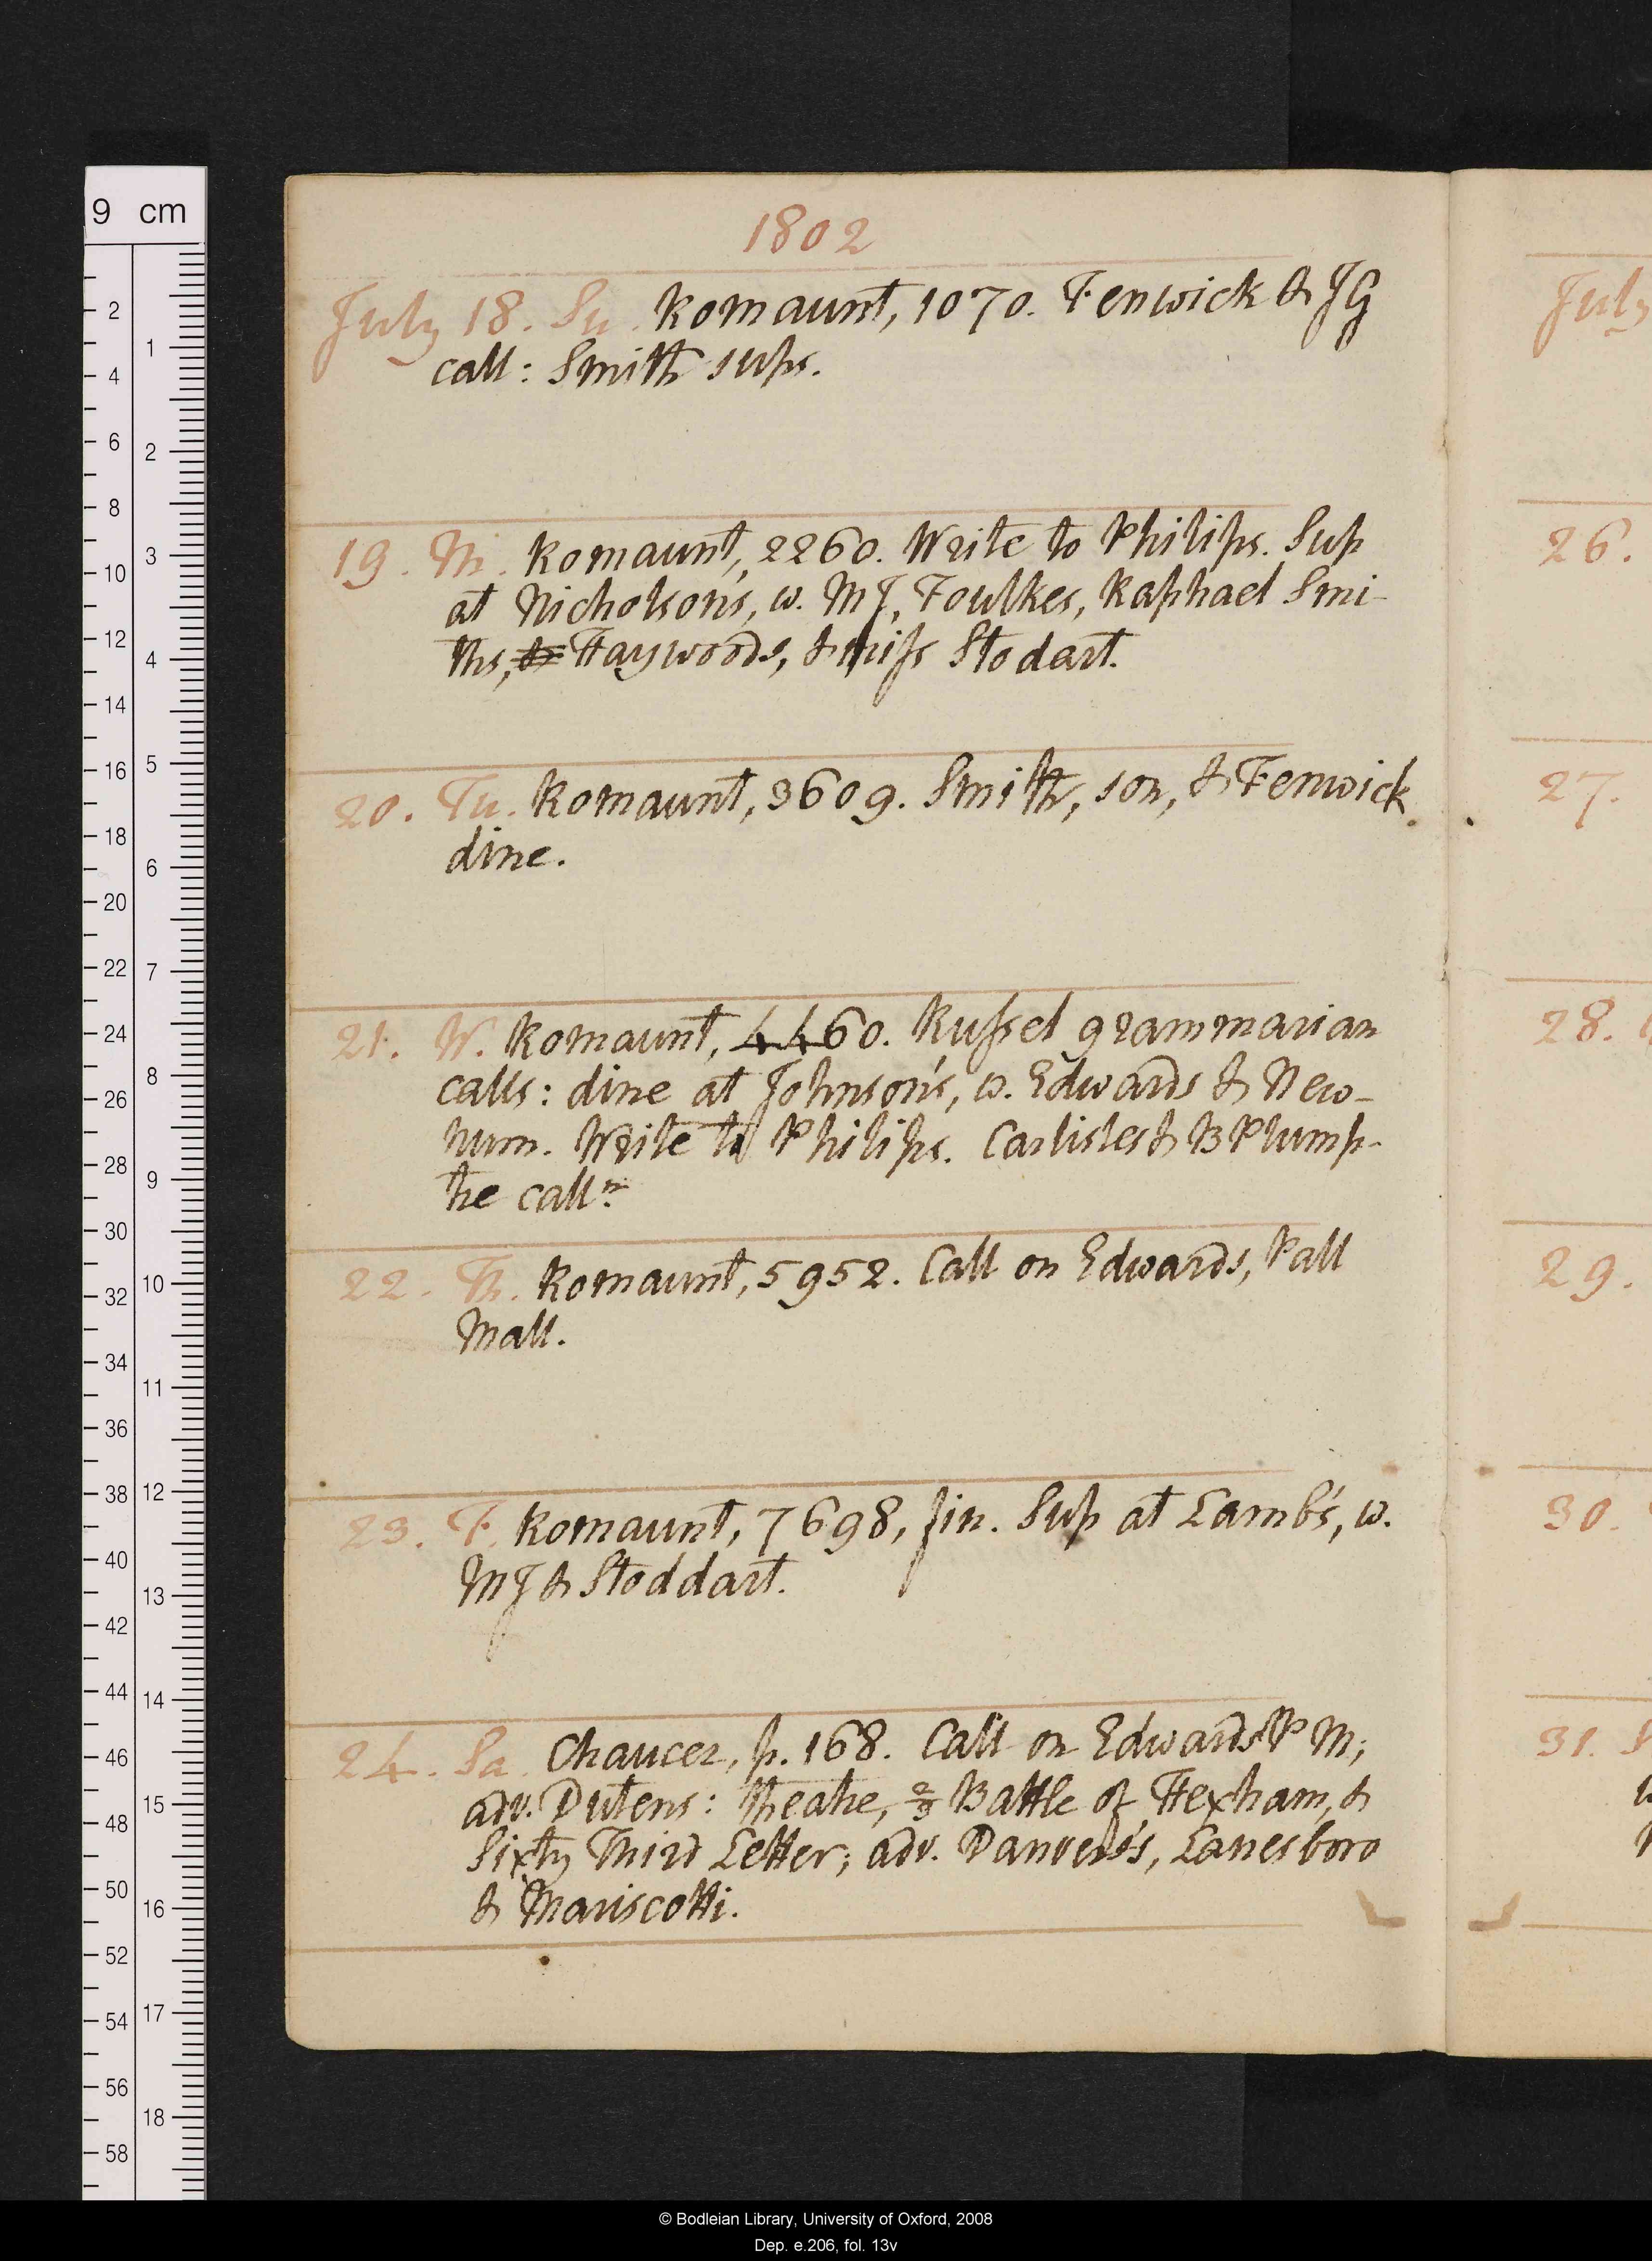 1802
July 18. Su. Romaunt, 1070. Fenwick & JG
call: Smith sups.
19. M. Romaunt, 2260. Write to Philips. Sup
at Nicholson's, w. MJ, Foulkes, Raphael Smi-
ths, & Haywoods, & miss Stodart.
20. Tu. Romaunt, 3609. Smith, son, & Fenwick
dine.
21. W. Romaunt, 4460. Russel grammarian
calls: dine at Johnson's, w. Edwards & New-
num. Write to Philips. Carlisles & B Plump-
tre calln
22. Th. Romaunt, 5952. Call on Edwards, Pall
Mall.
23. F. Romaunt, 7698, fin. Sup at Lamb's, w.
MJ & Stoddart.
24. Sa. Chaucer, p. 168. Call on Edwards P M;
adv. Dutens: theatre, 2/3 Battle of Hexham, &
Sixty Third Letter; adv. Danvers's, Lanesboro
& Mariscotti.
July
26.
27.
28.
29.
30.
31.
9 cm
© Bodleian Library, University of Oxford, 2008
Dep. e.206, fol. 13v